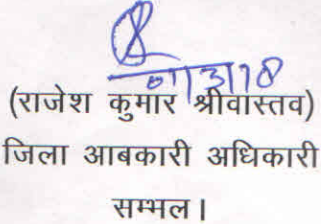 (राजेश कुमार श्रीवास्तव)
जिला आबकारी अधिकारी
सम्भल।